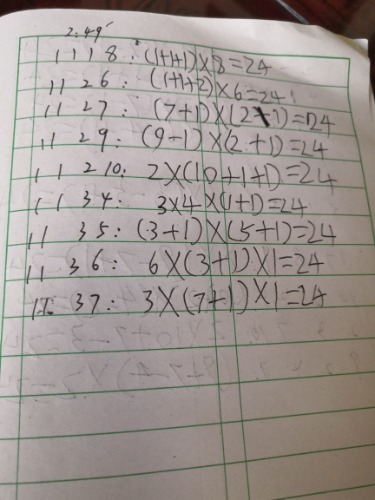 2:49
1 1 1 8: (1+1+1)×8=24
1 1 2 6: (1+1+2)×6=24
1 1 2 7: (7+1)×(2+1)=24
1 1 2 9: (9-1)×(2+1)=24
1 1 2 10: 2×(10+1+1)=24
1 1 3 4: 3×4×(1+1)=24
1 1 3 5: (3+1)×(5+1)=24
1 1 3 6: 6×(3+1)×1=24
1 1 3 7: 3×(7+1)×1=24